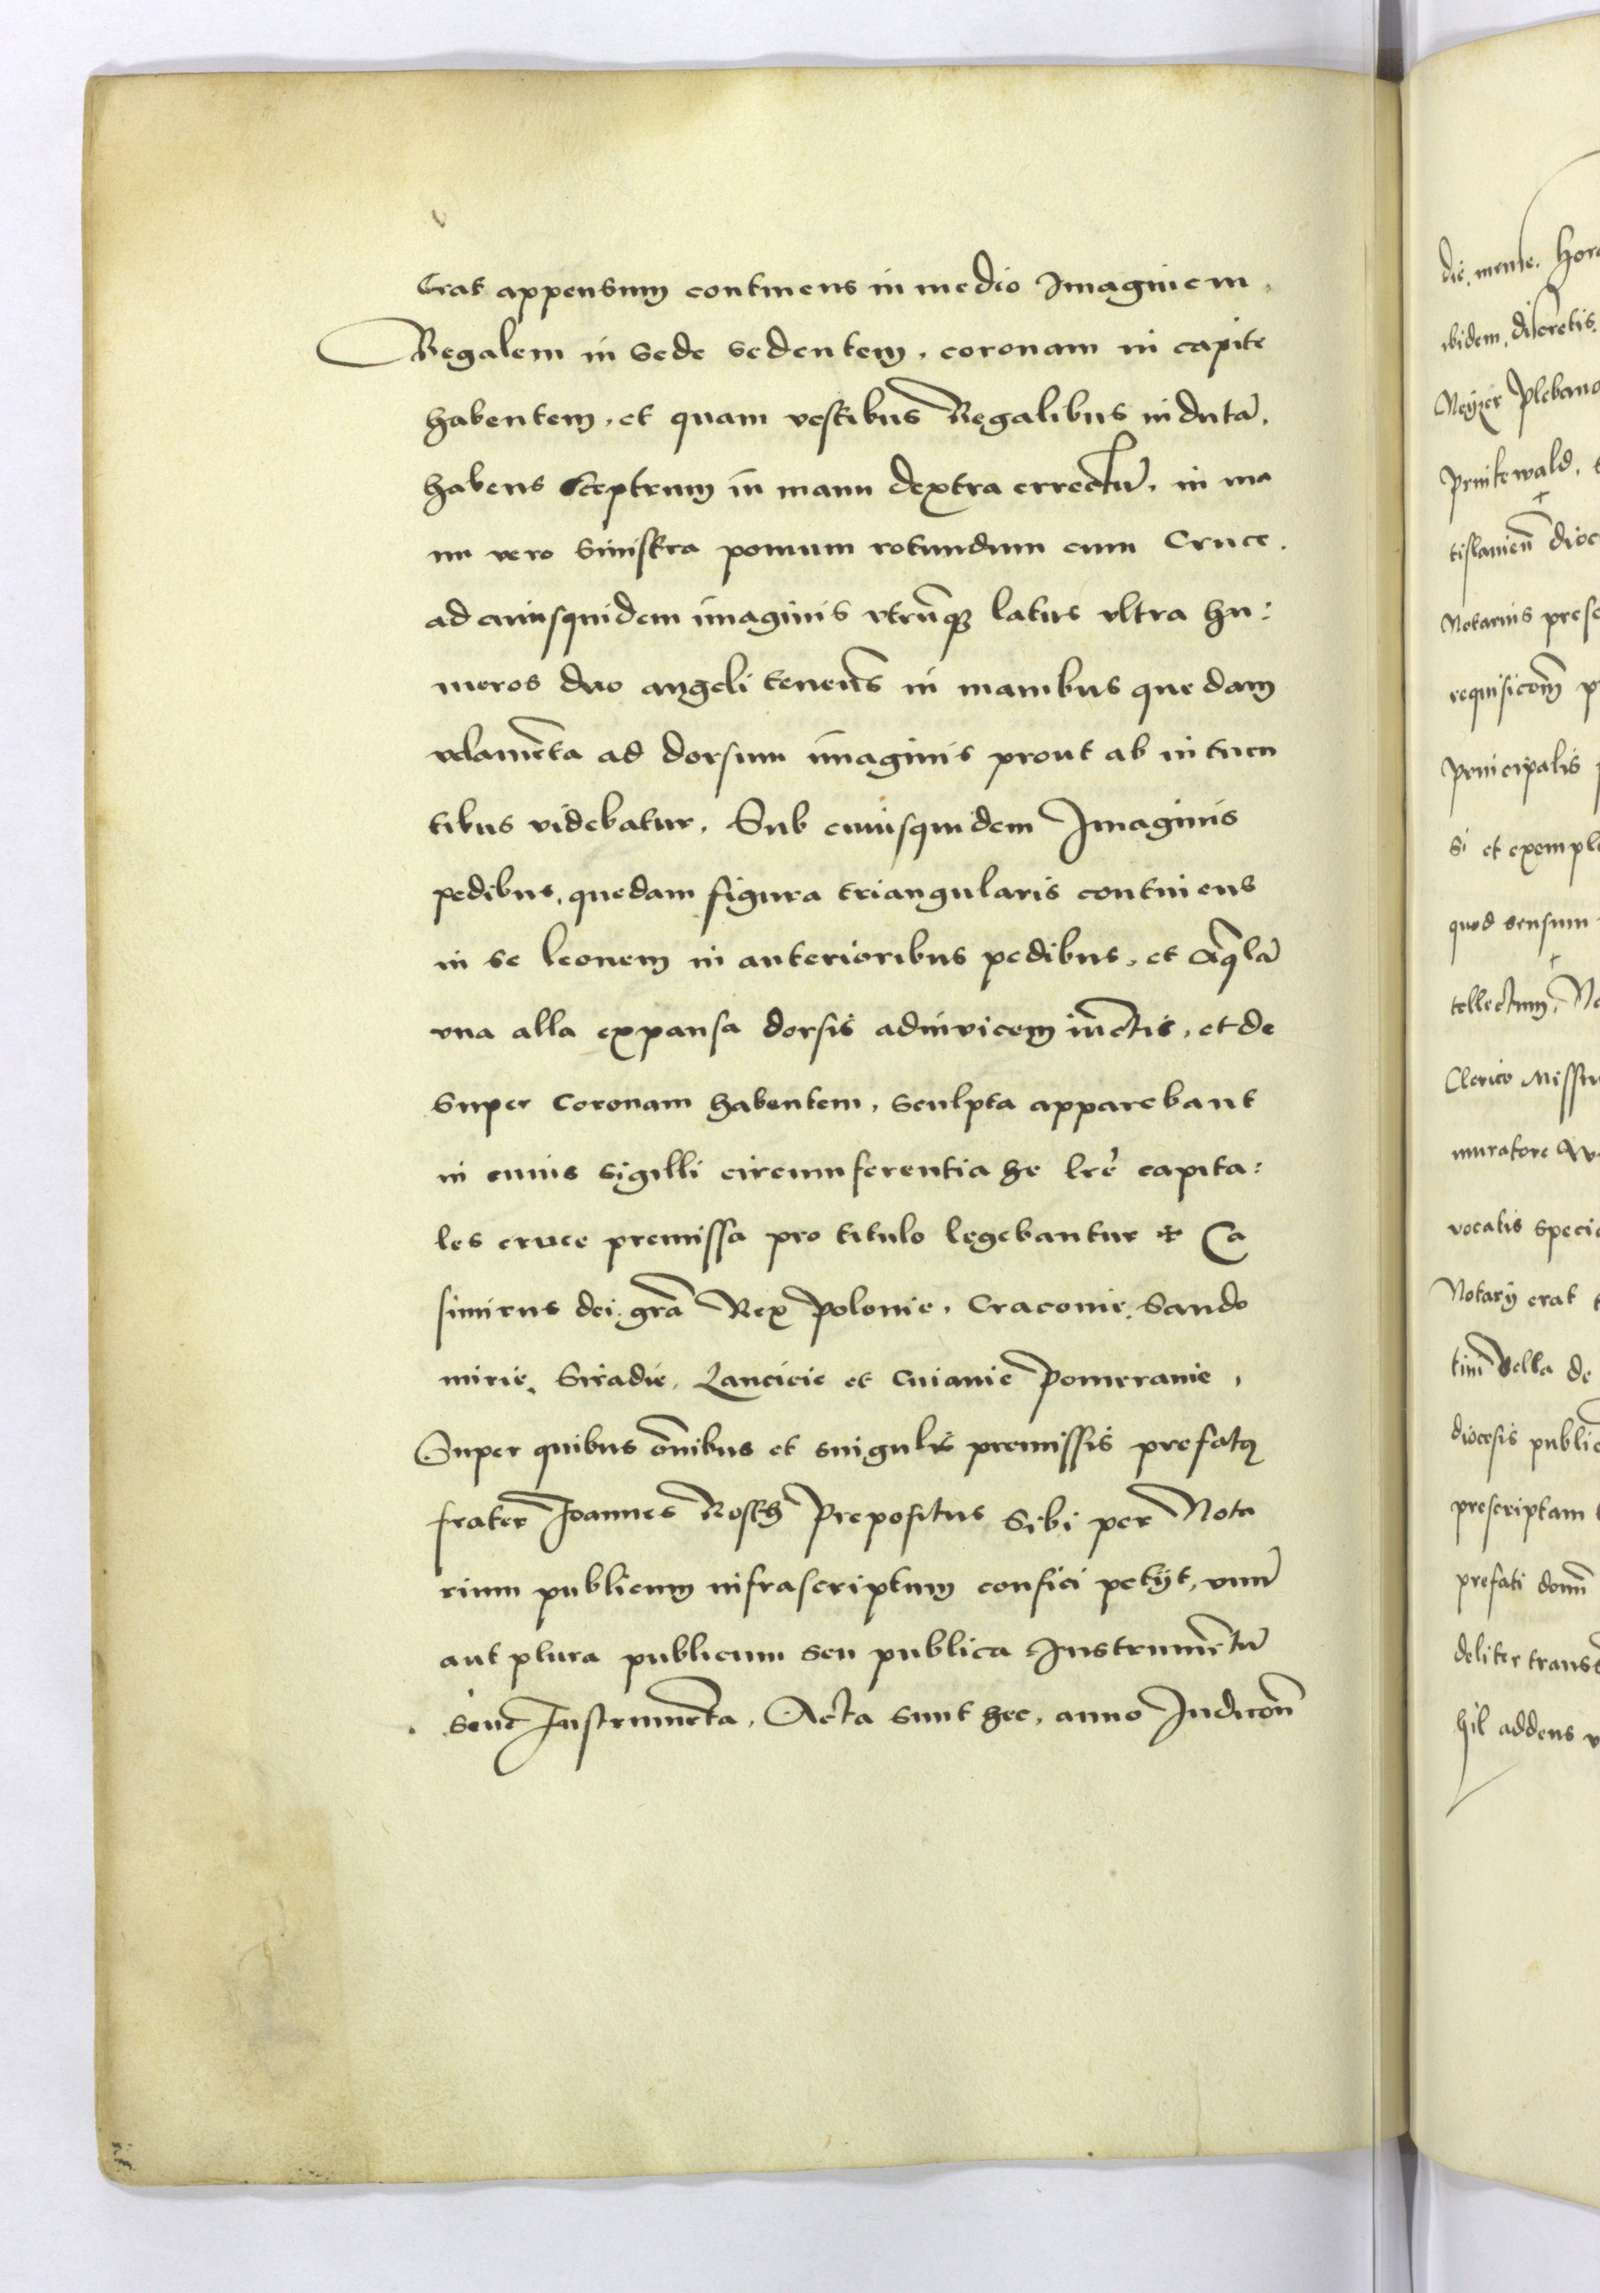 Erat appensum continens in medio Imaginem,
Regalem in sede sedentem, coronam in capite
habentem, et quam vestibus Regalibus indutā,
habens sceptrum in manu dextra errectū, in ma
nu vero sinistra pomum rotundum cum Cruce.
ad cuiusquidem imaginis vtrūqȝ latus vltra hu:
meros duo angeli tenen̄s in manibus quedam
velamēta ad dorsum imaginis prout ab intuen
tibus videbatur, Sub cuiusquidem Imaginis
pedibus, quedam figura triangularis continens
in se leonem in anterioribus pedibus, et Aq̄lā
vna alla expansa dorsis adinvicem iūctis, et de
super Coronam habentem, sculpta apparebant
in cuius sigilli circumferentia he lrē capita:
les cruce premissa pro titulo legebantur ✠ Ca
simirus dei grā Rex Polonie, Craconie, Sando
mirie, Siradie, Lancicie et Cuianie Pomeranie,
Super quibus ōnibus et singulis premissis prefatꝯ
frater Joannes Rosth Prepositus sibi per Nota
rium publicum infrascriptum confici petÿt, vnū
aut plura publicum seu publica Instrumētū
siue Instrumēta, Acta sunt hec, anno Indicōn̄
die, mense, Hora
ibidem, discretis
Neÿzer Plebano
Prutkewald,
tislauien̄ dioc
Notarius prese
requisicōm̄ p
principalis
si et exempl
quod sensum
tellectum, No
Clerico Missn
muratore
vocatis speci
Notarÿ erat
tini Vella de
diocesis public
prescriptam
prefati domī
deliter trans
hil addens v